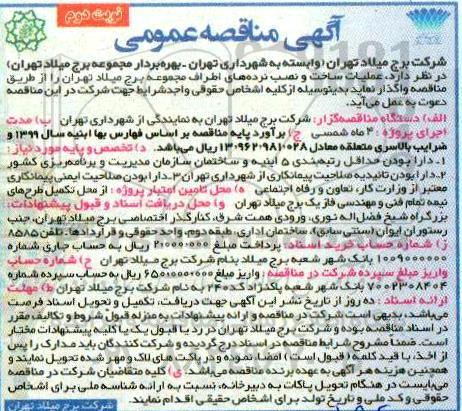 نوبت دوم
آگهی مناقصه عمومی
شرکت برج میلاد تهران (وابسته به شهرداری تهران - بهره‌بردار مجموعه برج میلاد تهران)
در نظر دارد، عملیات ساخت و نصب نرده‌های اطراف مجموعه برج میلاد تهران را از طریق
مناقصه واگذار نماید بدینوسیله از کلیه اشخاص حقوقی واجد شرایط جهت شرکت در این مناقصه
دعوت به عمل می‌آید.
الف) دستگاه مناقصه‌گزار: شرکت برج میلاد تهران به نمایندگی از شهرداری تهران ب) مدت
اجرای پروژه: ۴ ماه شمسی ج) برآورد پایه مناقصه بر اساس فهارس بها ابنیه سال ۱۳۹۹ و
ضرایب بالاسری متعلقه معادل ۱۳،۰۹۶۲،۹۸۱،۰۲۸ ریال می‌باشد. د) تخصص و پایه مورد نیاز:
۱ـ دارا بودن حداقل رتبه‌بندی ۵ ابنیه و ساختمان سازمان مدیریت و برنامه‌ریزی کشور
۲ـ دارا بودن تائیدیه صلاحیت پیمانکاری از شهرداری تهران ۳ـ دارا بودن صلاحیت ایمنی پیمانکاری
معتبر از وزارت کار، تعاون و رفاه اجتماعی ه) محل تامین اعتبار پروژه: از محل تکمیل طرح‌های
نیمه تمام فنی و مهندسی فاز یک برج میلاد تهران و) محل دریافت اسناد و قبول پیشنهادات:
بزرگراه شیخ فضل‌اله نوری، ورودی همت شرق، کنارگذر اختصاصی برج میلاد تهران، جنب
رستوران ایوان (سنتی سابق)، ساختمان اداری، طبقه دوم، واحد حقوقی و قراردادها - تلفن ۸۵۸۵
ز) شماره حساب خرید اسناد: پرداخت مبلغ ۲،۰۰۰،۰۰۰ ریال به حساب جاری شماره
۱۰۰۹۰۰۰۰۰۰ بانک شهر شعبه برج میلاد بنام شرکت برج میلاد تهران ح) شماره حساب
واریز مبلغ سپرده شرکت در مناقصه: واریز مبلغ ۶۵۰،۰۰۰،۰۰۰ ریال به حساب سپرده شماره
۷۰۰۲۳۰۸۴۰۴ بانک شهر شعبه پاکنژاد کد ۲۴۰ به نام شرکت برج میلاد تهران ط) مهلت
ارائه اسناد: ده روز از تاریخ نشر این آگهی جهت دریافت، تکمیل و تحویل اسناد فرصت
می‌باشد، بدیهی است شرکت در مناقصه و ارائه پیشنهادات به منزله قبول شروط و تکالیف مقرر
در اسناد مناقصه بوده و شرکت برج میلاد تهران در رد یا قبول یک یا کلیه پیشنهادات مختار
است. ضمناً مشروح شرایط مناقصه در اسناد درج گردیده و شرکت کنندگان باید مدارک را پس
از اخذ، با قید کلمه (قبول است) امضاء نموده و در پاکت های لاک و مهر شده تحویل نمایند و
همچنین هزینه هر آگهی به عهده برنده مناقصه می‌باشد. ی) کلیه متقاضیان شرکت در مناقصه
می‌بایست در هنگام تحویل پاکات به دبیرخانه، نسبت به ارائه شناسه ملی برای اشخاص
حقوقی و کد ملی و تاریخ تولد برای اشخاص حقیقی اقدام نمایند.
شرکت برج میلاد تهران